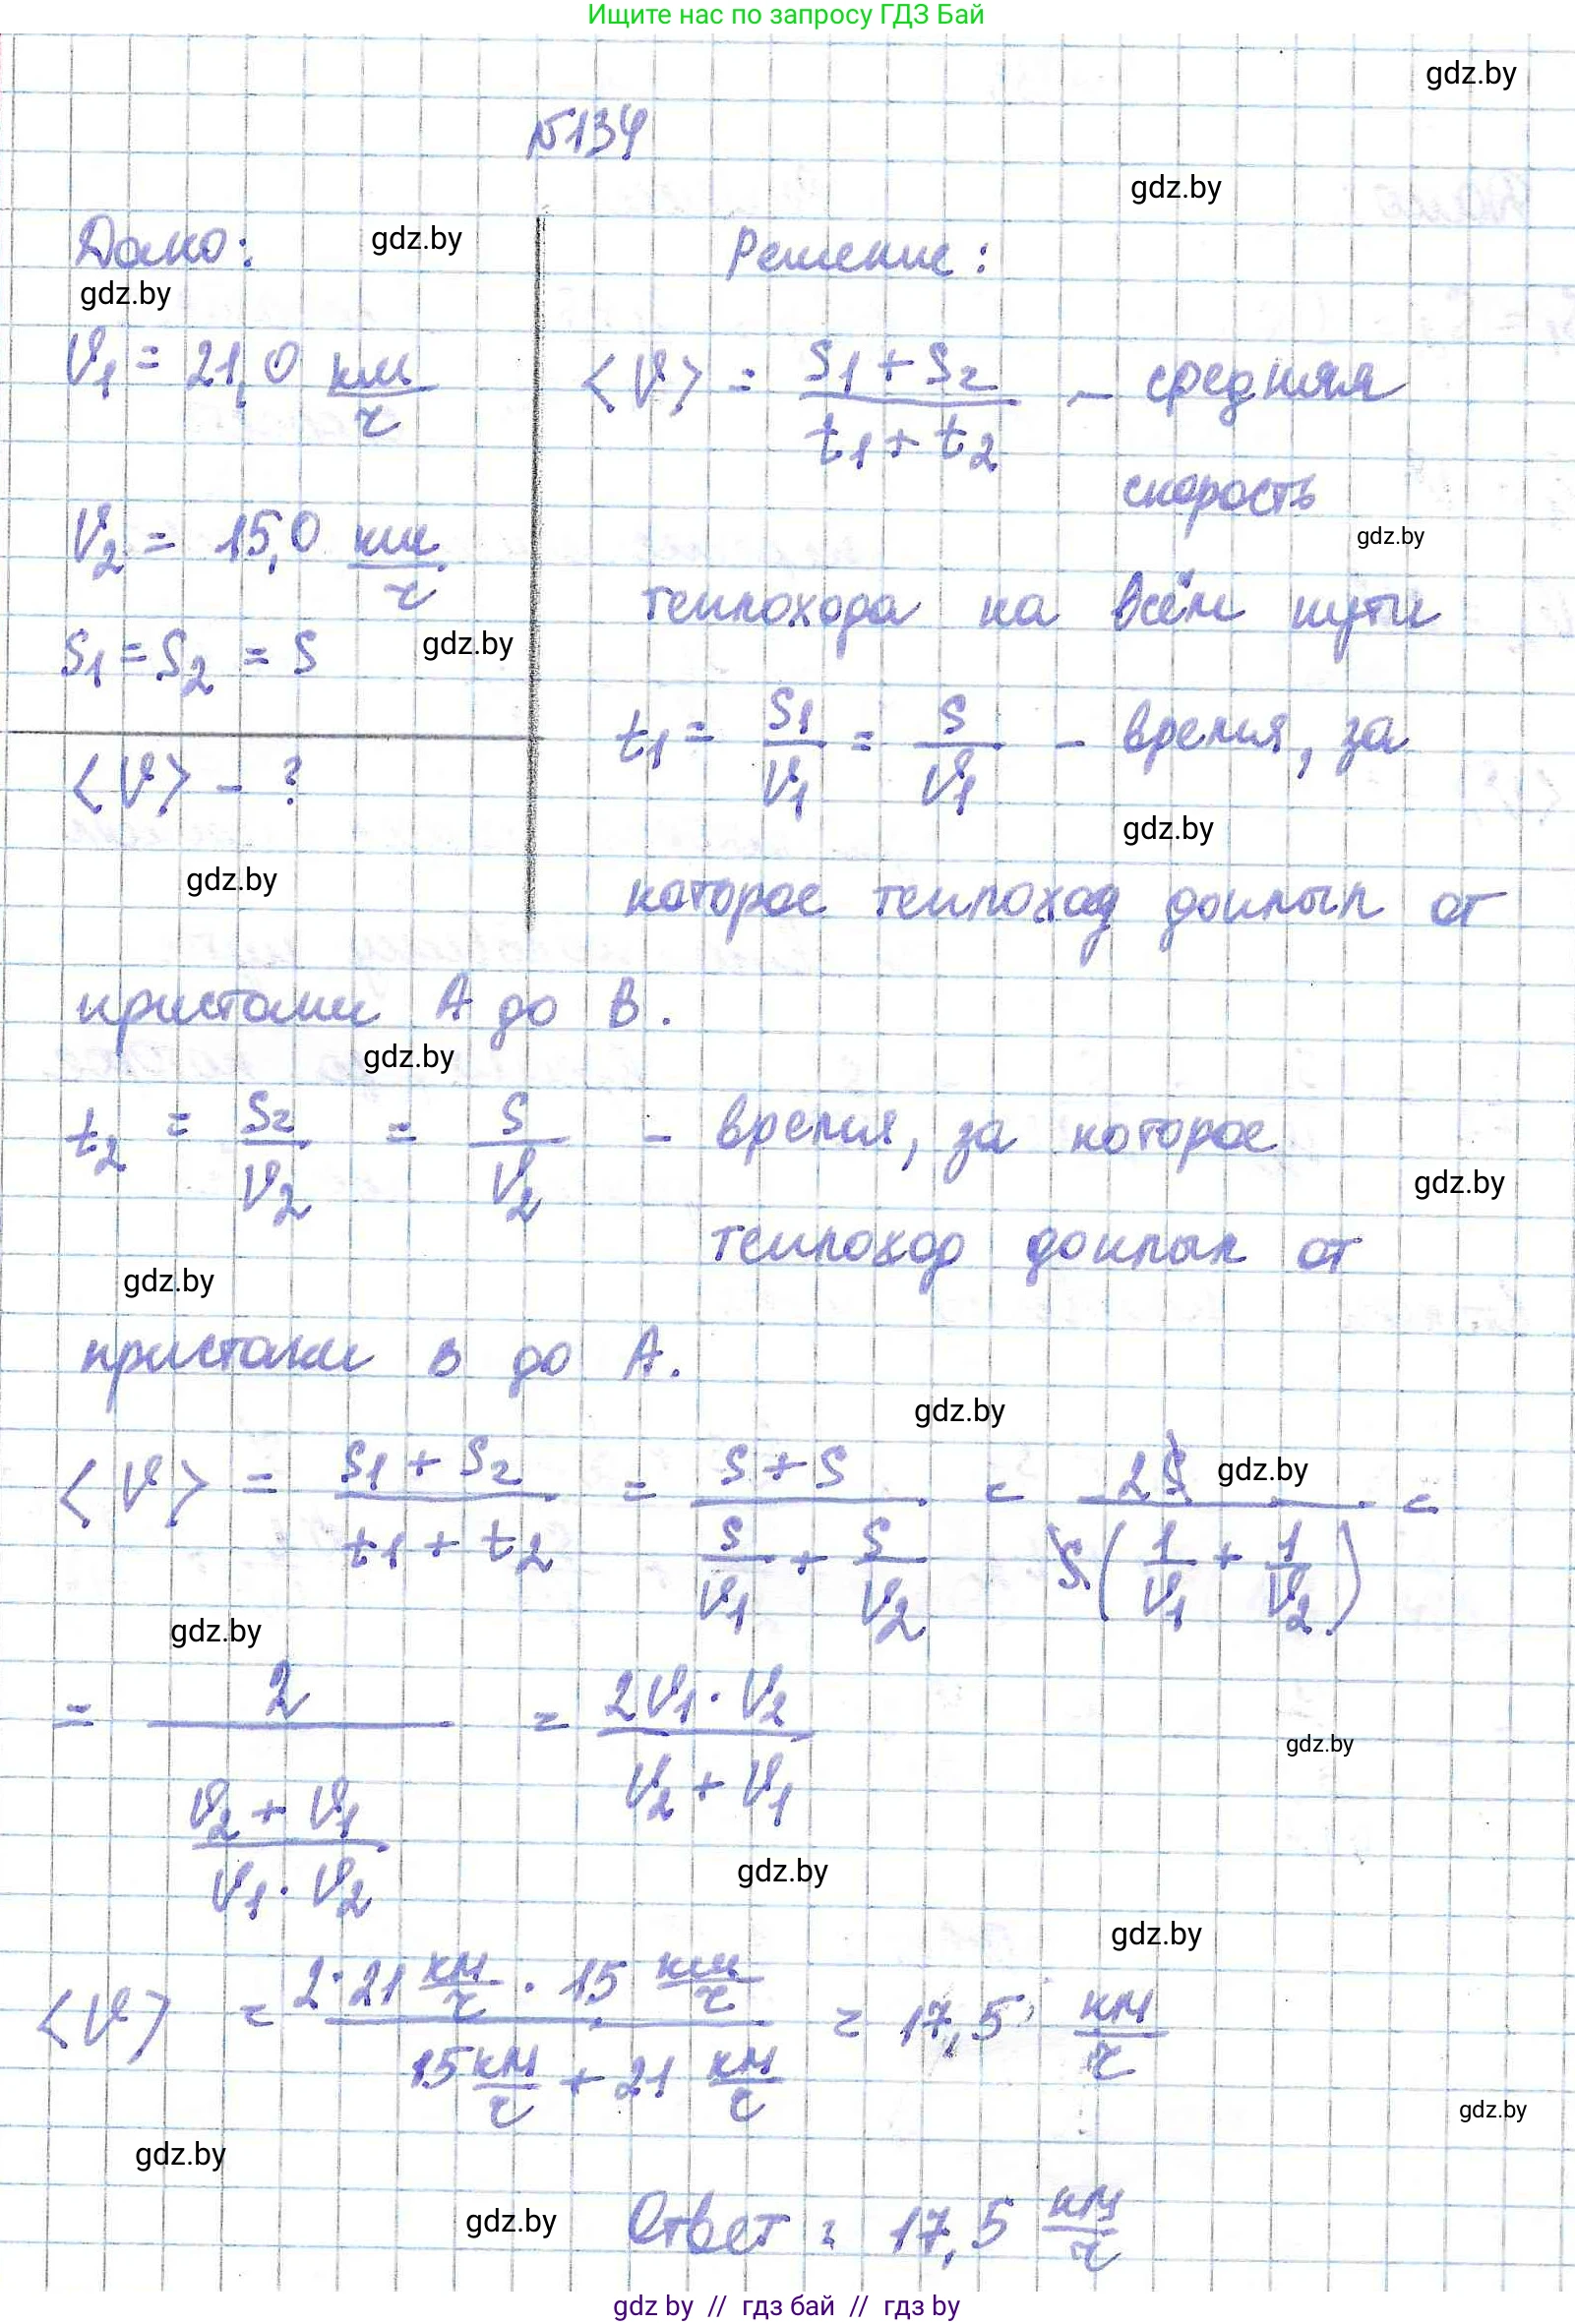 Ищите нас по запросу ГДЗ Бай
gdz.by
№134
gdz.by
Дано:
gdz.by
Решение:
gdz.by
v₁ = 21,0 км/ч
<v> = (s₁ + s₂)/(t₁ + t₂) – средняя
скорость
gdz.by
v₂ = 15,0 км/ч
теплохода на всём пути
s₁ = s₂ = s
gdz.by
t₁ = s₁/v₁ = s/v₁ – время, за
<v> – ?
gdz.by
gdz.by
которое теплоход доплыл от
пристани А до В.
gdz.by
t₂ = s₂/v₂ = s/v₂ – время, за которое
gdz.by
теплоход доплыл от
gdz.by
пристани В до А.
gdz.by
<v> = (s₁ + s₂)/(t₁ + t₂) = (s + s)/(s/v₁ + s/v₂) = 2s/(s(1/v₁ + 1/v₂)) =
gdz.by
gdz.by
= 2/((v₂ + v₁)/(v₁ · v₂)) = (2v₁ · v₂)/(v₂ + v₁)
gdz.by
gdz.by
gdz.by
<v> = (2·21 км/ч · 15 км/ч)/(15 км/ч + 21 км/ч) = 17,5 км/ч
gdz.by
gdz.by
gdz.by
Ответ: 17,5 км/ч
gdz.by // гдз бай // гдз by